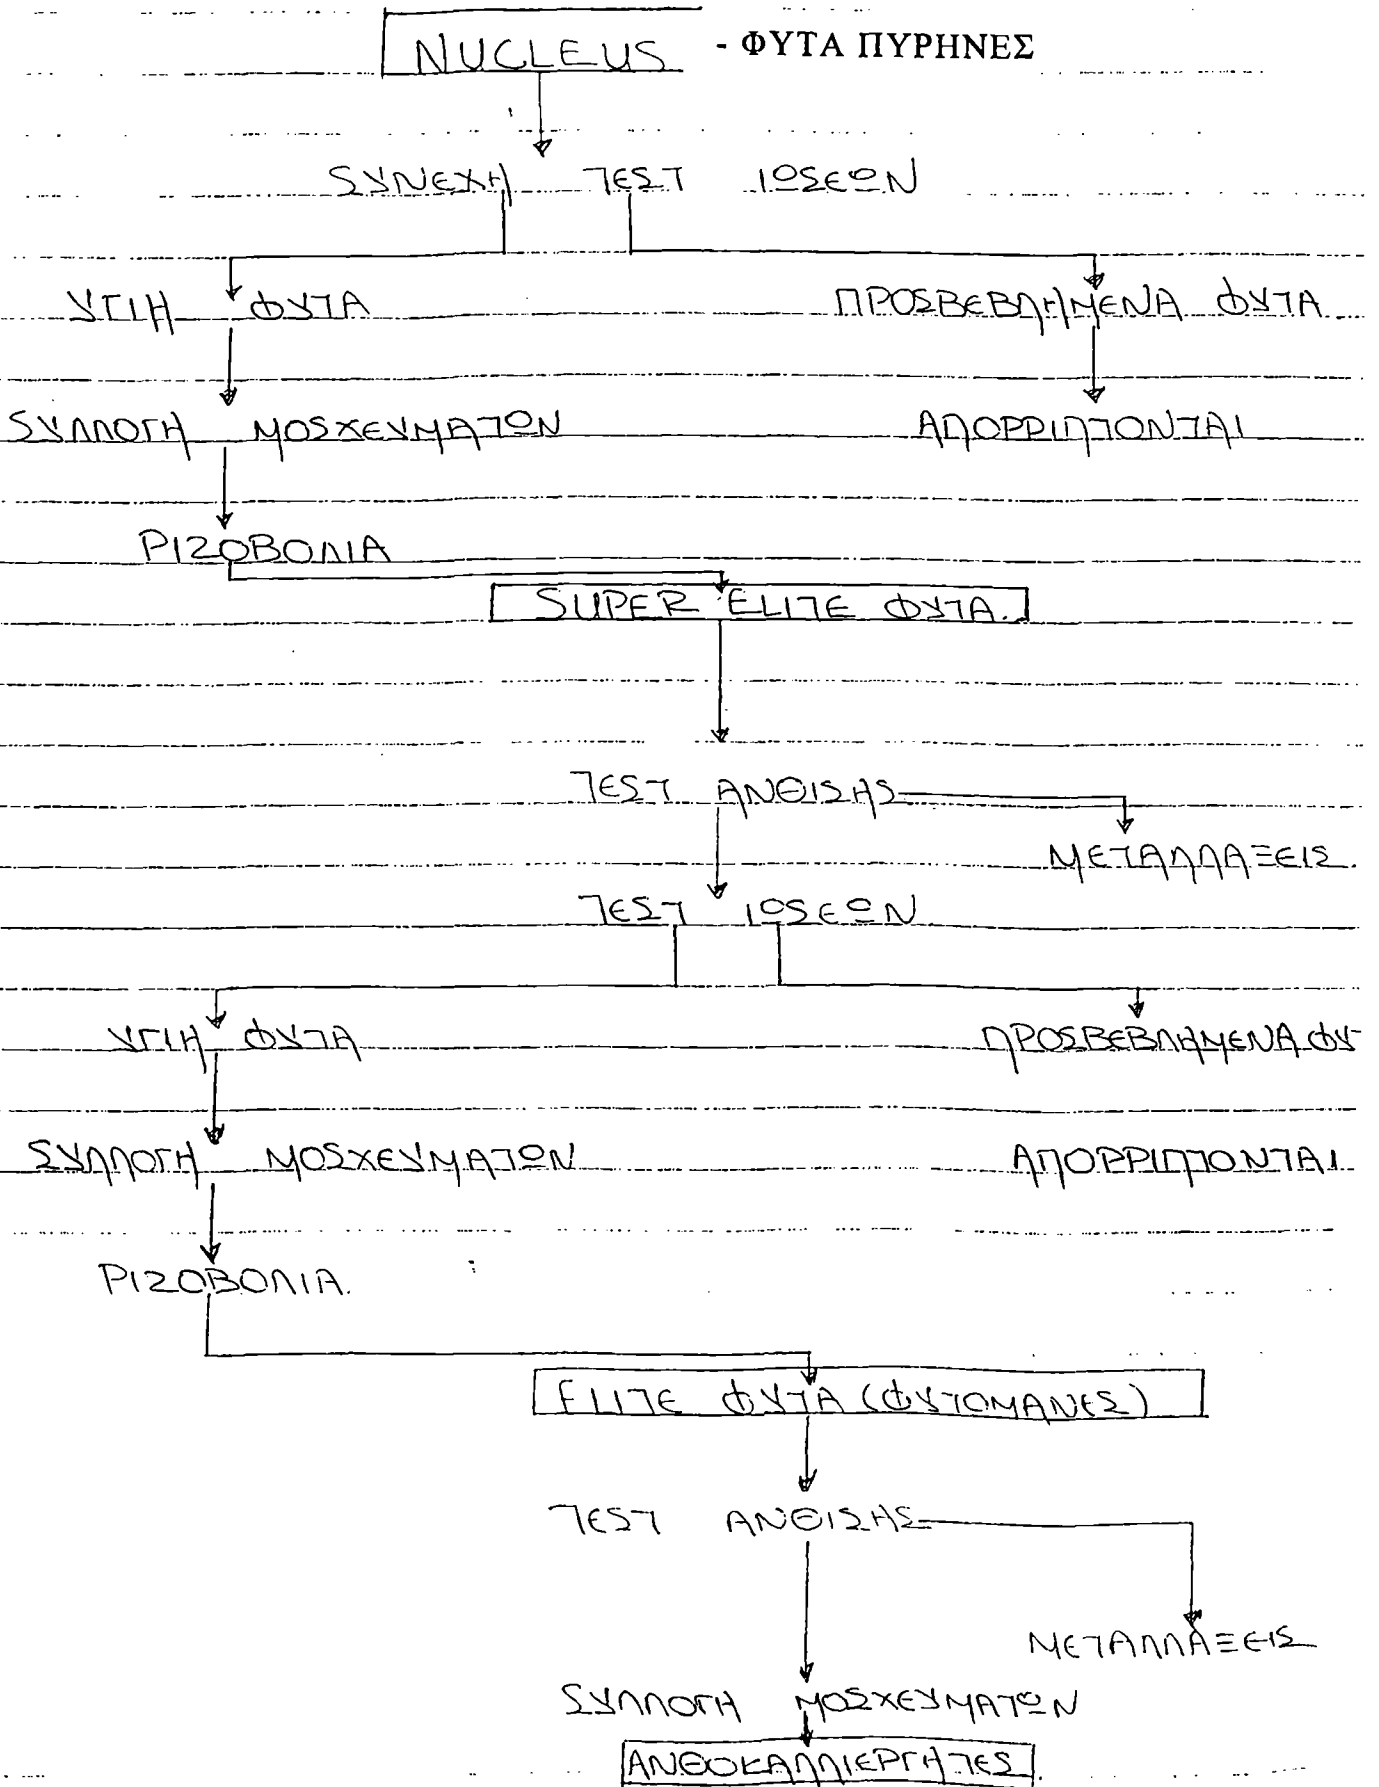 NUCLEUS - ΦΥΤΑ ΠΥΡΗΝΕΣ
ΣΥΝΕΧΗ ΤΕΣΤ ΙΩΣΕΩΝ
ΥΓΙΗ ΦΥΤΑ ΠΡΟΣΒΕΒΛΗΜΕΝΑ ΦΥΤΑ
ΣΥΛΛΟΓΗ ΜΟΣΧΕΥΜΑΤΩΝ ΑΠΟΡΡΙΠΤΟΝΤΑΙ
ΡΙΖΟΒΟΛΙΑ
SUPER ELITE ΦΥΤΑ.
ΤΕΣΤ ΑΝΘΙΣΗΣ
ΜΕΤΑΛΛΑΞΕΙΣ.
ΤΕΣΤ ΙΩΣΕΩΝ
ΥΓΙΗ ΦΥΤΑ ΠΡΟΣΒΕΒΛΗΜΕΝΑ ΦΥ
ΣΥΛΛΟΓΗ ΜΟΣΧΕΥΜΑΤΩΝ ΑΠΟΡΡΙΠΤΟΝΤΑΙ
ΡΙΖΟΒΟΛΙΑ.
ELITE ΦΥΤΑ (ΦΥΤΟΜΑΝΕΣ)
ΤΕΣΤ ΑΝΘΙΣΗΣ
ΜΕΤΑΛΛΑΞΕΙΣ
ΣΥΛΛΟΓΗ ΜΟΣΧΕΥΜΑΤΩΝ
ΑΝΘΟΚΑΛΛΙΕΡΓΗΤΕΣ